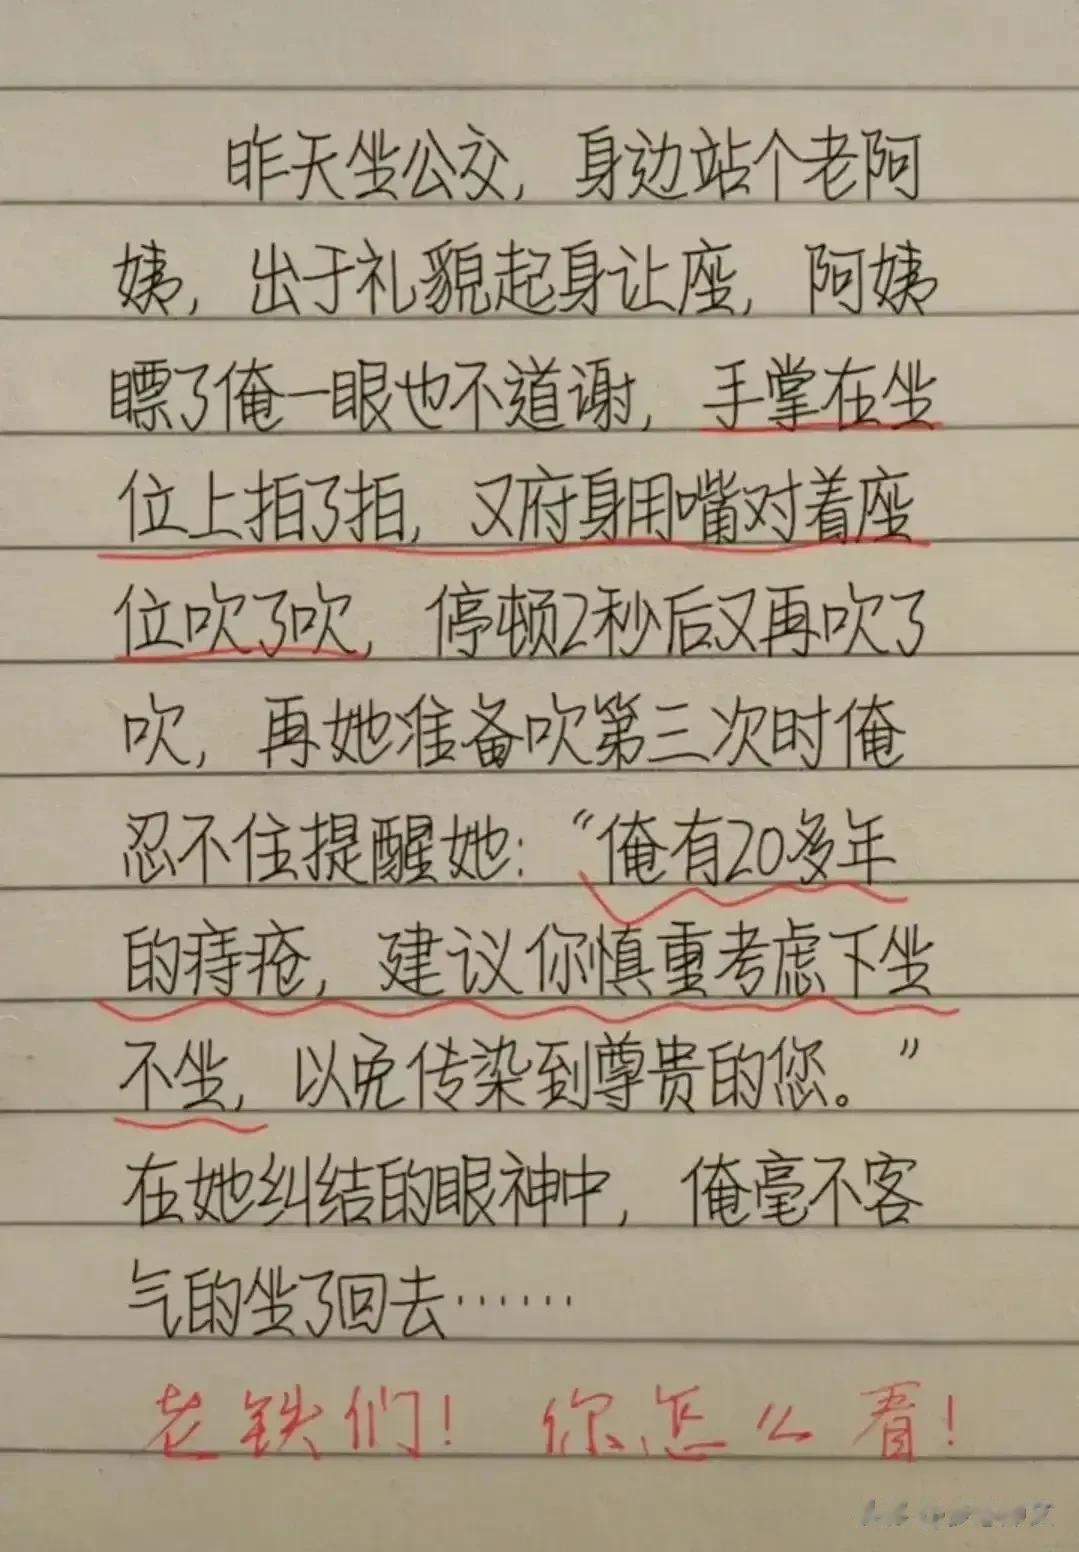 昨天坐公交，身边站个老阿
姨，出于礼貌起身让座，阿姨
瞟了俺一眼也不道谢，手掌在坐
位上拍了拍，又府身用嘴对着座
位吹了吹，停顿2秒后又再吹了
吹，再她准备吹第三次时俺
忍不住提醒她：“俺有20多年
的痔疮，建议你慎重考虑下坐
不坐，以免传染到尊贵的您。”
在她纠结的眼神中，俺毫不客
气的坐了回去……
老铁们！你怎么看！